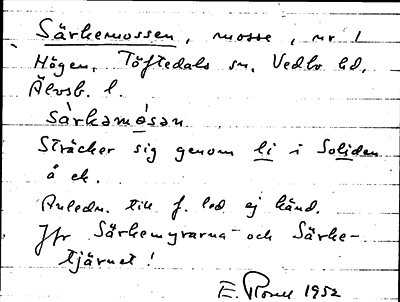 Särkemossen, mosse, nr 1
Högen, Töftedals sn, Vedbo hd,
Älvsb. l.
sàrkəmósən
Sträcker sig genom li i Soliden
å ek.
Anledn. till f. led ej känd.
Jfr Särkemyrarna och Särke-
tjärnet!
E. 1952